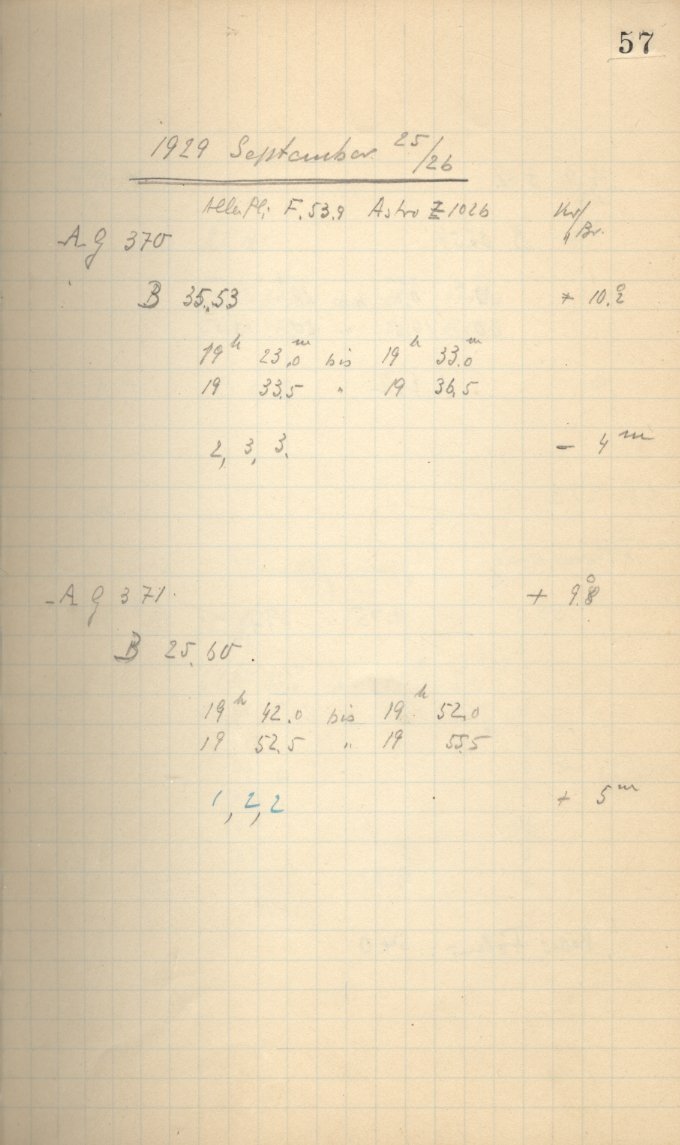 57
1929 September 25/26
F. 53.9 Astro Z 1026
AG 370
B 35.53 + 10.°2
19h 23.m0 bis 19h 33.m0
19 33.5 " 19 36.5
2, 3, 3. - 4m
AG 371. + 9.°8
B 25.60.
19h 42.0 bis 19h 52.0
19 52.5 " 19 55.5
1, 2, 2 + 5m